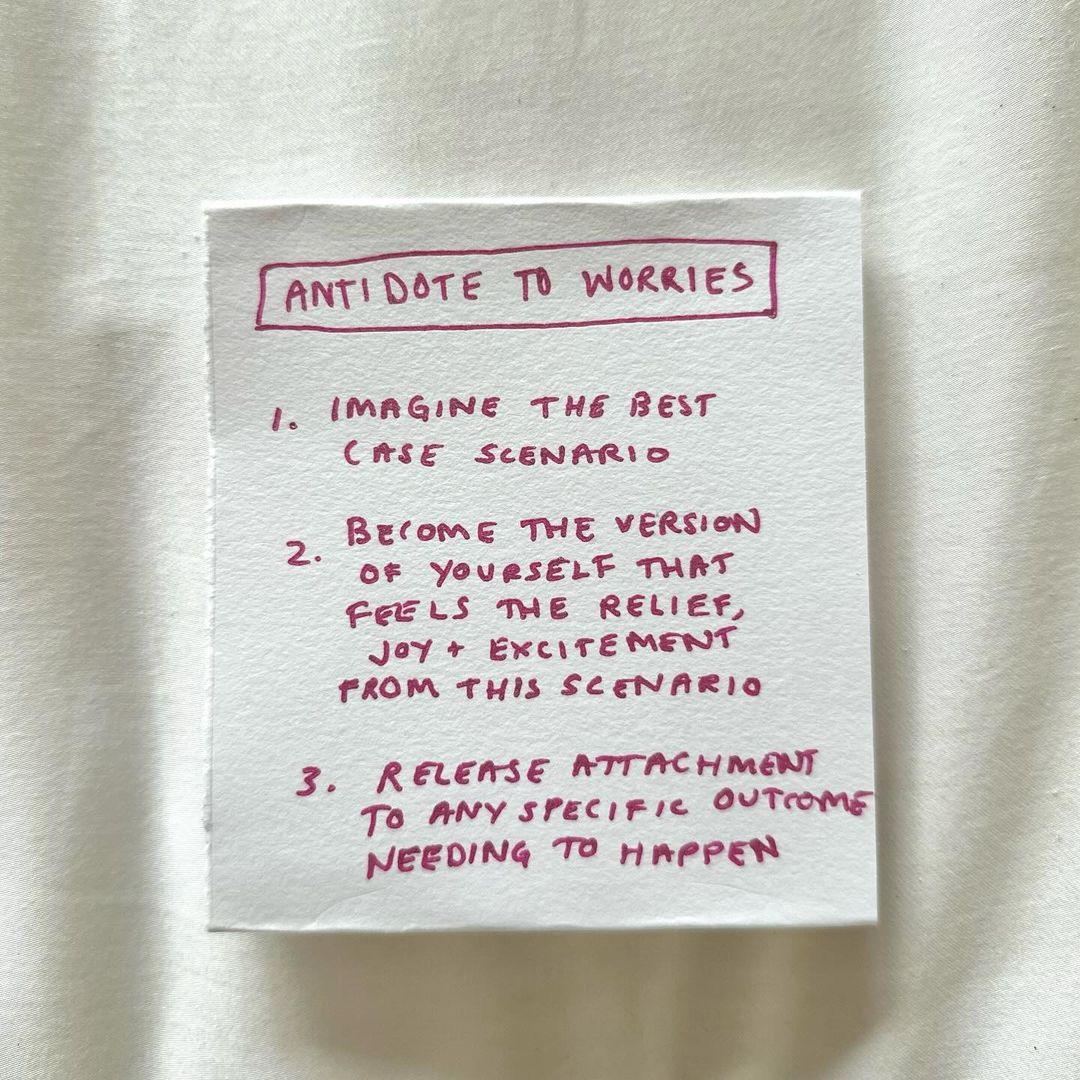 ANTIDOTE TO WORRIES
1. IMAGINE THE BEST
CASE SCENARIO
2. BECOME THE VERSION
OF YOURSELF THAT
FEELS THE RELIEF,
JOY + EXCITEMENT
FROM THIS SCENARIO
3. RELEASE ATTACHMENT
TO ANY SPECIFIC OUTCOME
NEEDING TO HAPPEN